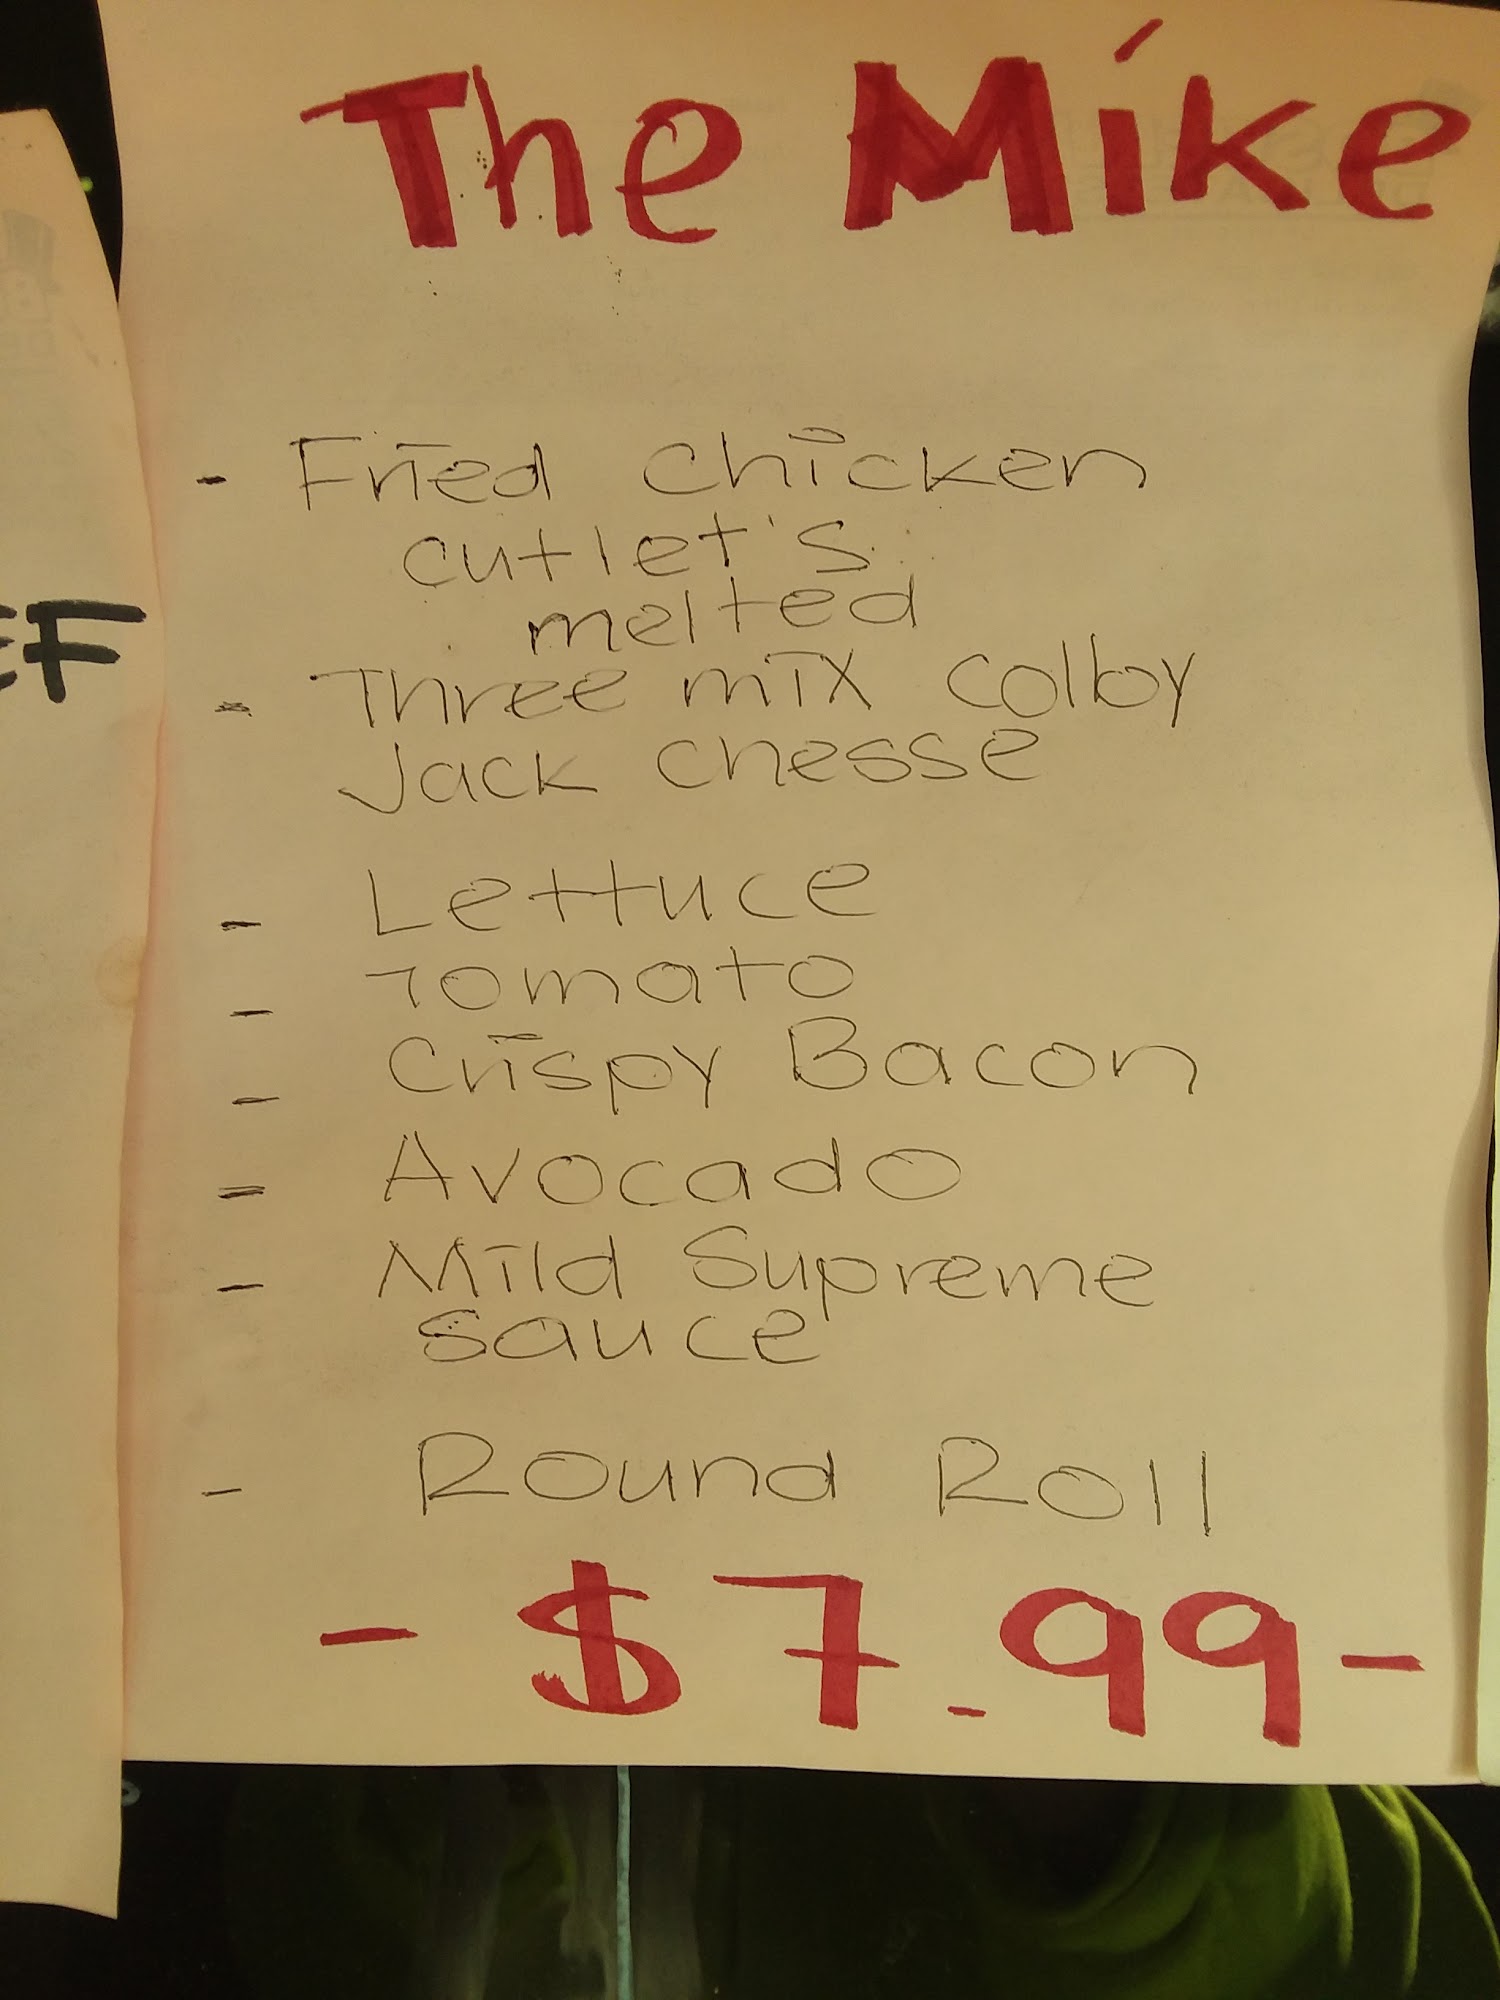 The Mike
- Fried chicken
cutlet's
melted
- Three mix colby
Jack chesse
- Lettuce
- Tomato
- Crispy Bacon
- Avocado
- Mild Supreme
sauce
- Round Roll
- $7.99-
EF